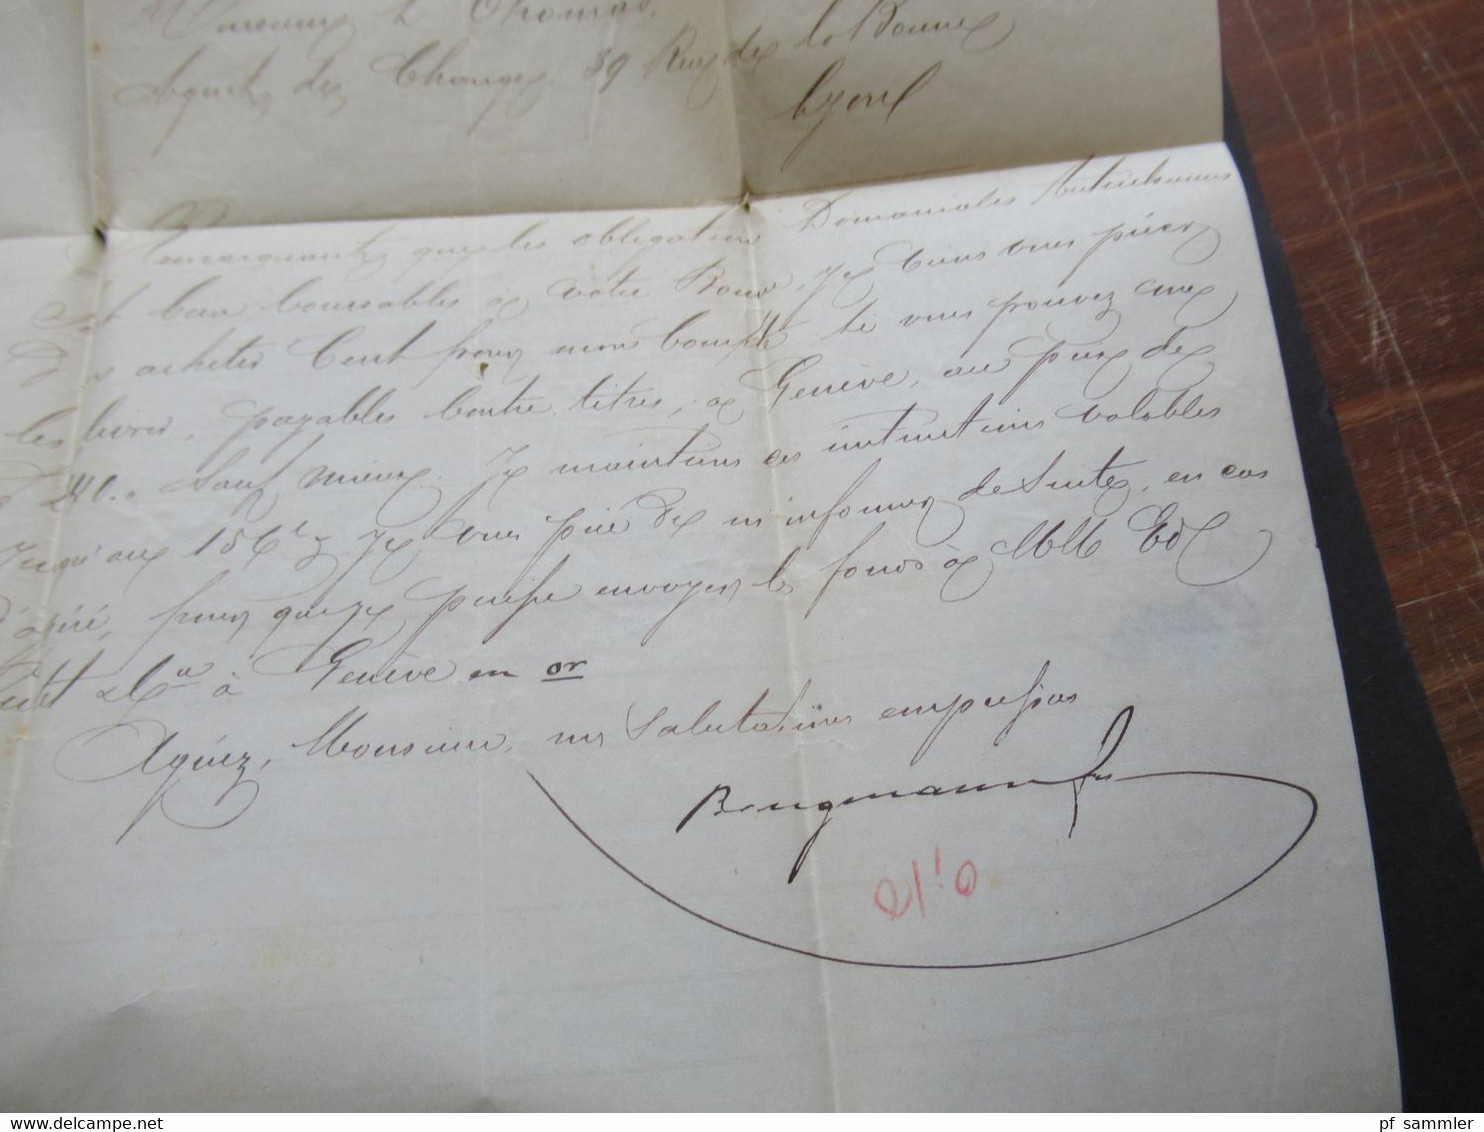 Thomas,
Agents de Change. 39 Rue de la Bourse
Lyon
Remarquant que les obligations Domaniales Autrichiennes
bien à votre Bourse, je viens vous prier
acheter Cent pour mon compte si vous pouvez me
les livrer, payables contre titres, à Genève, au prix de
240.. Sauf mieux. Je maintiens ces instructions valables
Jusqu'au 15 & je vous prie de m'informer de Suite, en cas
pour que je puisse envoyer les fonds à MM Ed
à Genève en or
Agréez, Monsieur, mes Salutations empressées
delcampe.net
pf_sammler